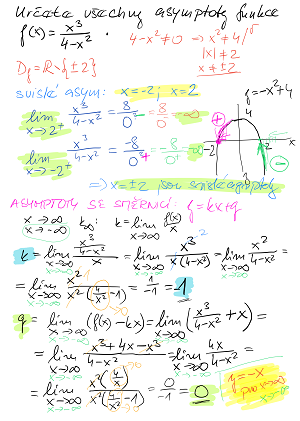 Určete všechny asymptoty funkce
f(x) = x³/(4-x²) . 4-x² ≠ 0 → x² ≠ 4 /√
|x| ≠ 2
x ≠ ±2
D_f = R∖{±2}
svislé asym: x = -2; x = 2 f = -x²+4
lim x→2⁺ x³/(4-x²) = 8/0⁻ = -∞
lim x→-2⁺ x³/(4-x²) = -8/0⁺ = -∞
-2 2
⇒ x = ±2 jsou svislé asymptoty
ASYMPTOTY SE SMĚRNICÍ: y = kx+q
x→∞
x→-∞ k = lim x→∞ f(x)/x
k = lim x→∞ (x³/(4-x²))/x = lim x→∞ x³/(x(4-x²)) = lim x→∞ x²/(4-x²) =
= lim x→∞ x²/(x²(4/x²-1)) = 1/-1 = -1
q = lim x→∞ (f(x) - kx) = lim x→∞ (x³/(4-x²) + x) =
= lim x→∞ (x³+4x-x³)/(4-x²) = lim x→∞ 4x/(4-x²) =
= lim x→∞ x²(4/x)/(x²(4/x²-1)) = 0/-1 = 0
y = -x
pro x→∞
x→-∞